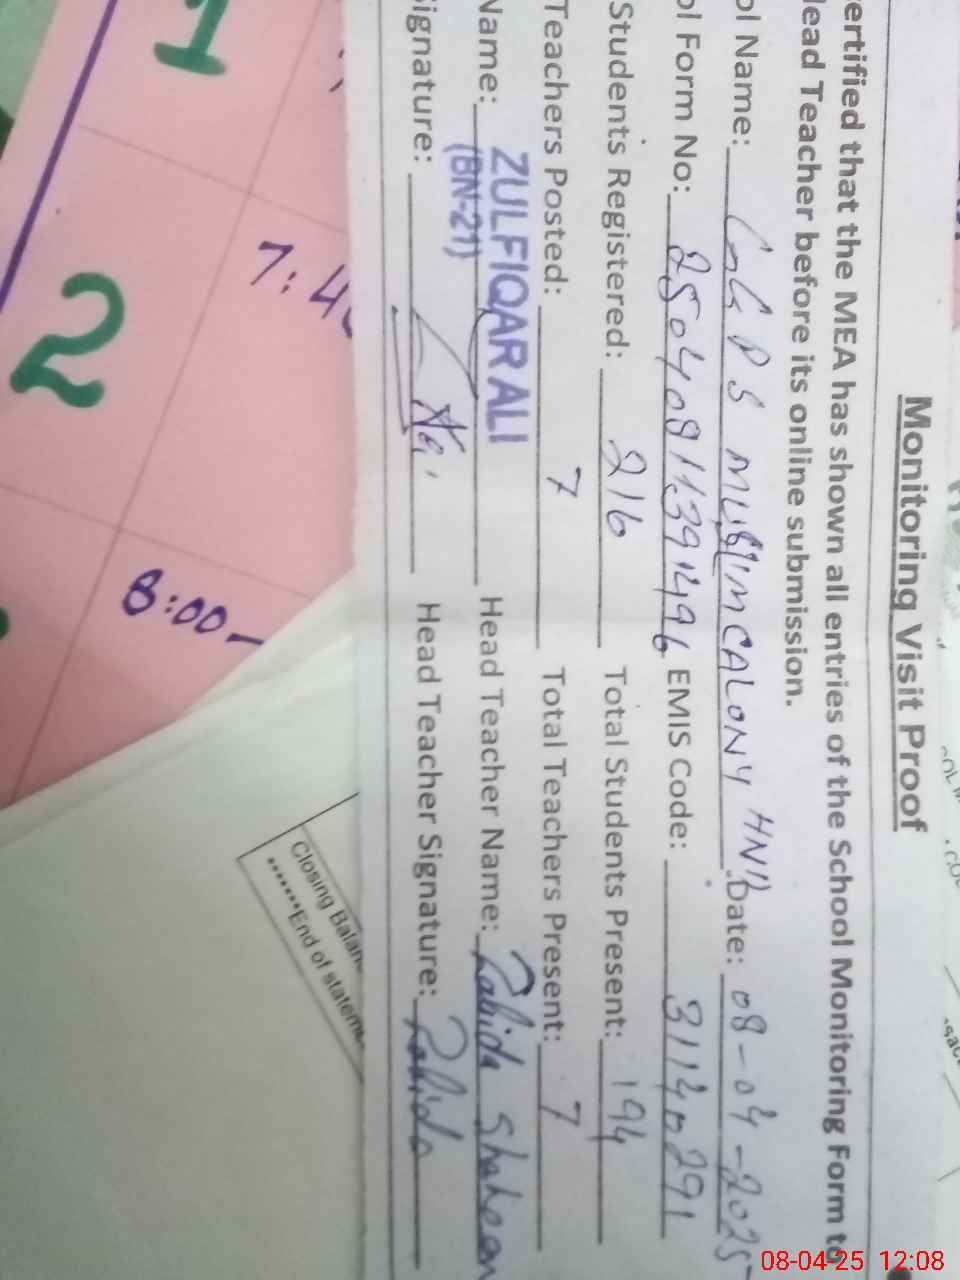 Monitoring Visit Proof
ertified that the MEA has shown all entries of the School Monitoring Form to
lead Teacher before its online submission.
ol Name: GGPS MUSLIM CALONY HND Date: 08-04-2025
ol Form No: EMIS Code:
Students Registered: 216 Total Students Present: 194
Teachers Posted: 7 Total Teachers Present: 7
Name: ZULFIQAR ALI (BN-21) Head Teacher Name: Zahida Shaheen
ignature: Head Teacher Signature: Zahida
1
2
7:40
8:00-
Closing Balan
*******End of stateme
08-04-25 12:08